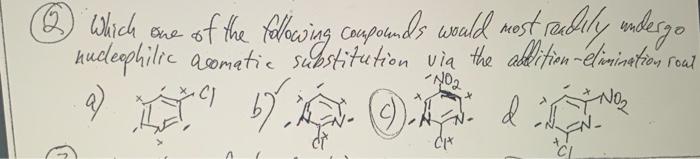 ② Which one of the following compounds would most readily undergo
nucleophilic aromatic substitution via the addition-elimination rout
a) Cl b) N N Cl c) NO2 N N Cl d NO2 N Cl